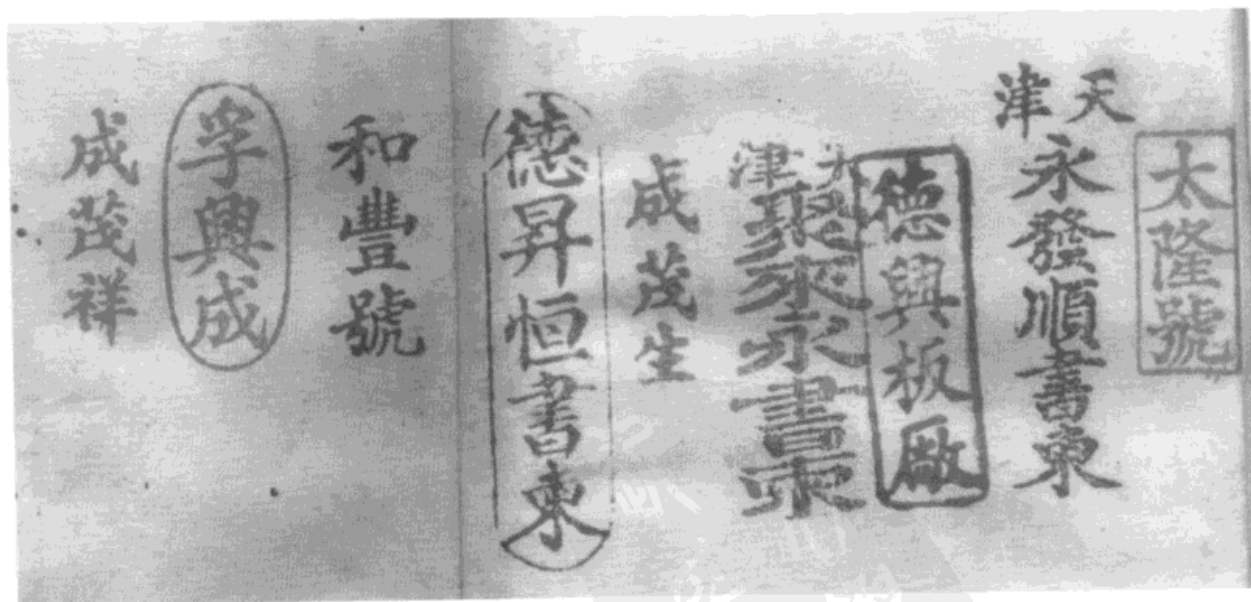 太隆號
天津
永發順書柬
德興板廠
天津
聚永書柬
成茂生
德昇恒書柬
和豐號
孚興成
成茂祥